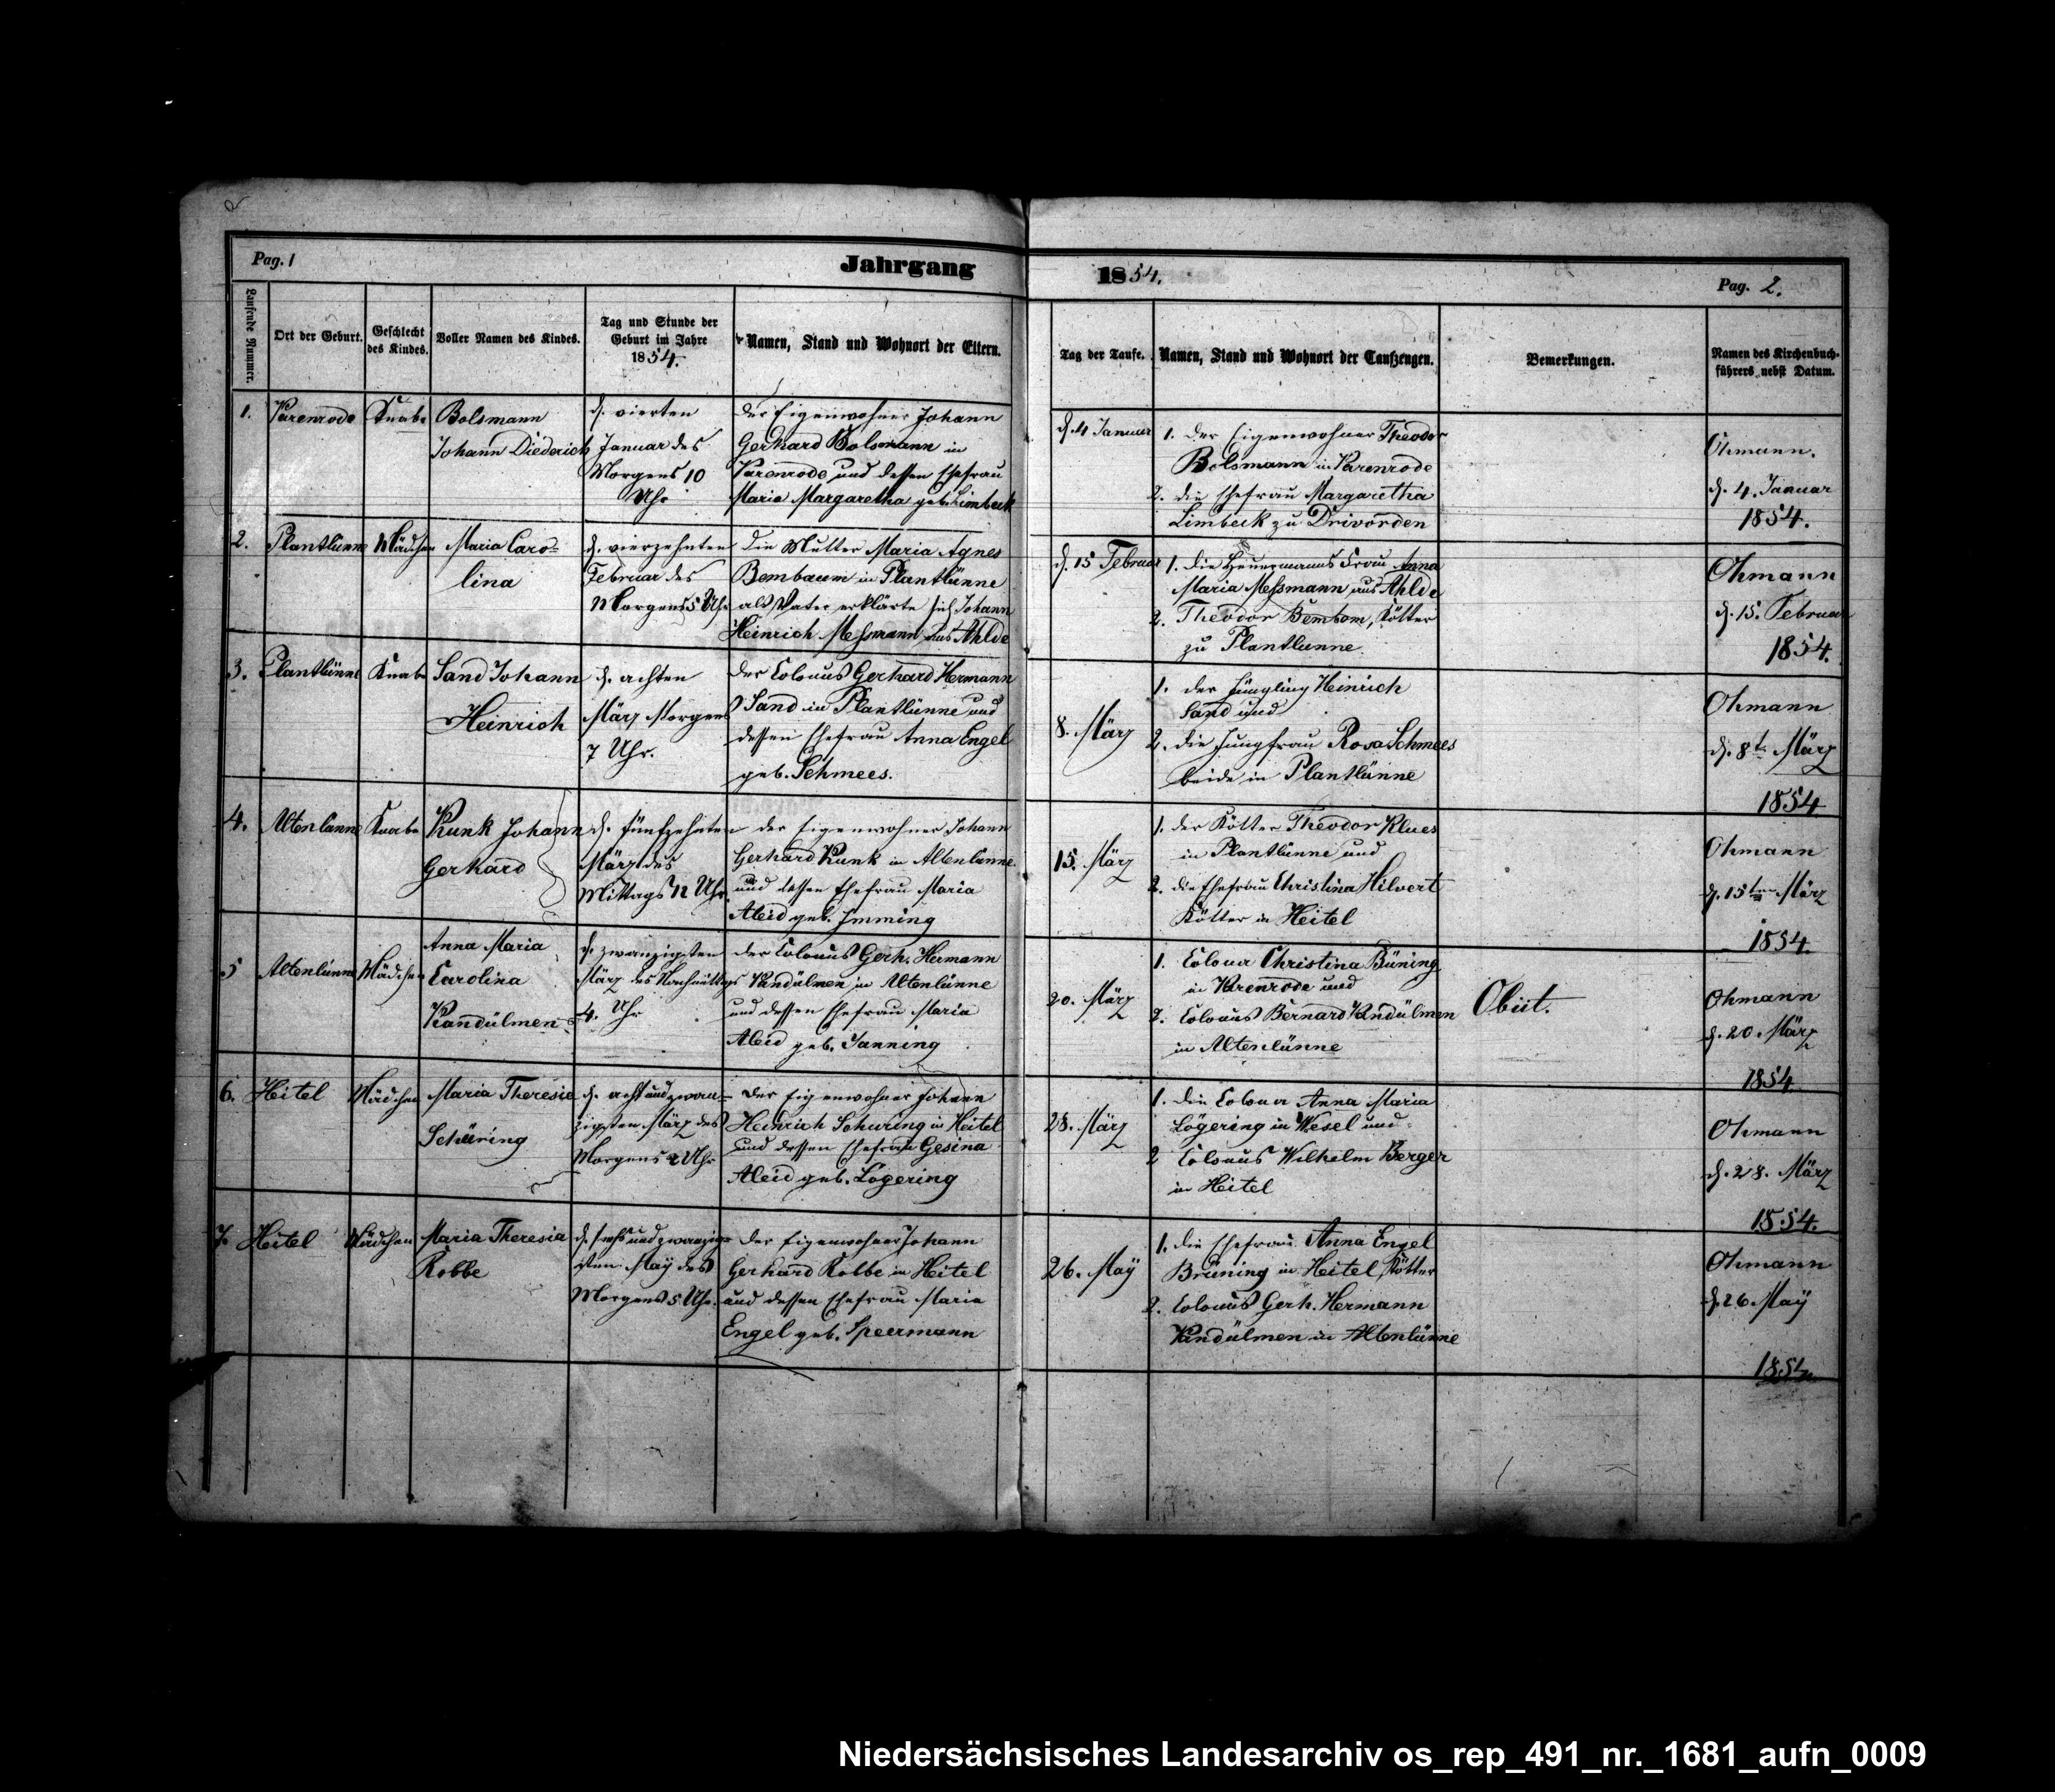 Pag. 1
Jahrgang
1854.
Pag. 2.
Laufende Nummer.
Ort der Geburt.
Geschlecht
des Kindes.
Voller Namen des Kindes.
Tag und Stunde der
Geburt im Jahre
1854.
Namen, Stand und Wohnort der Eltern.
Tag der Taufe.
Namen, Stand und Wohnort der Taufzeugen.
Bemerkungen.
Namen des Kirchenbuch-
führers nebst Datum.
1.
Varenrode
Knabe
Bolsmann
Johann Diederich
d. vierten
Januar des
Morgens 10
Uhr
der Eigenwohner Johann
Gerhard Bolsmann in
Varenrode und dessen Ehefrau
Maria Margaretha geb. Limbeck
d. 4 Januar
1. der Eigenwohner Theodor
Bolsmann in Varenrode
2. die Ehefrau Margaretha
Limbeck zu Drivorden
Ohmann.
d. 4. Januar
1854.
2.
Plantlünne
Mädchen
Maria Caro=
lina
d. vierzehnten
Februar des
Morgens 5 Uhr
die Mutter Maria Agnes
Bembaum in Plantlünne
als Vater erklärte sich Johann
Heinrich Meßmann aus Ahlde
d. 15 Februar
1. die Heuermanns Frau Anna
Maria Meßmann aus Ahlde
2. Theodor Bembom, Kötter
zu Plantlunne
Ohmann
d. 15. Februar
1854.
3.
Plantlünne
Knabe
Sand Johann
Heinrich
d. achten
März Morgens
7 Uhr.
der Colonus Gerhard Hermann
Sand in Plantlünne und
dessen Ehefrau Anna Engel
geb. Schmees.
8. März
1. der Jüngling Heinrich
Sand und
2. die Jungfrau Rosa Schmees
beide in Plantlünne
Ohmann
d. 8t März
1854
4.
Altenlünne
Knabe
Kunk Johann
Gerhard
d. fünfzehnten
März des
Mittags 12 Uhr.
der Eigenwohner Johann
Gerhard Kunk in Altenlünne
und dessen Ehefrau Maria
Aleid geb. Imming
15. März
1. der Kötter Theodor Klues
in Plantlünne und
2. die Ehefrau Christina Hilvert
Kötter in Heitel
Ohmann
d. 15ten März
1854
5
Altenlünne
Mädchen
Anna Maria
Carolina
Vandülmen
d. zwanzigsten
März des Nachmittags
4. Uhr
der Colonus Gerh. Hermann
Vandülmen in Altenlünne
und dessen Ehefrau Maria
Aleid geb. Janning
20. März
1. Colona Christina Büning
in Varenrode und
2. Colonus Bernard Vandülmen
in Altenlünne
Obiit.
Ohmann
d. 20 März
1854
6.
Heitel
Mädchen
Maria Theresia
Schüring
d. acht und zwan=
zigsten März des
Morgens 2 Uhr
der Eigenwohner Johann
Heinrich Schuring in Heitel
und dessen Ehefrau Gesina
Aleid geb. Lögering
28. März
1. die Colona Anna Maria
Lögering in Wesel und
2 Colonus Wilhelm Berger
in Heitel
Ohmann
d. 28. März
1854.
7.
Heitel
Mädchen
Maria Theresia
Robbe
d. sechs und zwanzig=
sten May des
Morgens 5 Uhr.
der Eigenwohner Johann
Gerhard Robbe in Heitel
und dessen Ehefrau Maria
Engel geb. Speermann
26. Maÿ
1. die Ehefrau Anna Engel
Brüning in Heitel, Kötter
2. Colonus Gerh. Hermann
Vandülmen in Altenlünne
Ohmann
d. 26 Maÿ
1854.
Niedersächsisches Landesarchiv os_rep_491_nr._1681_aufn_0009